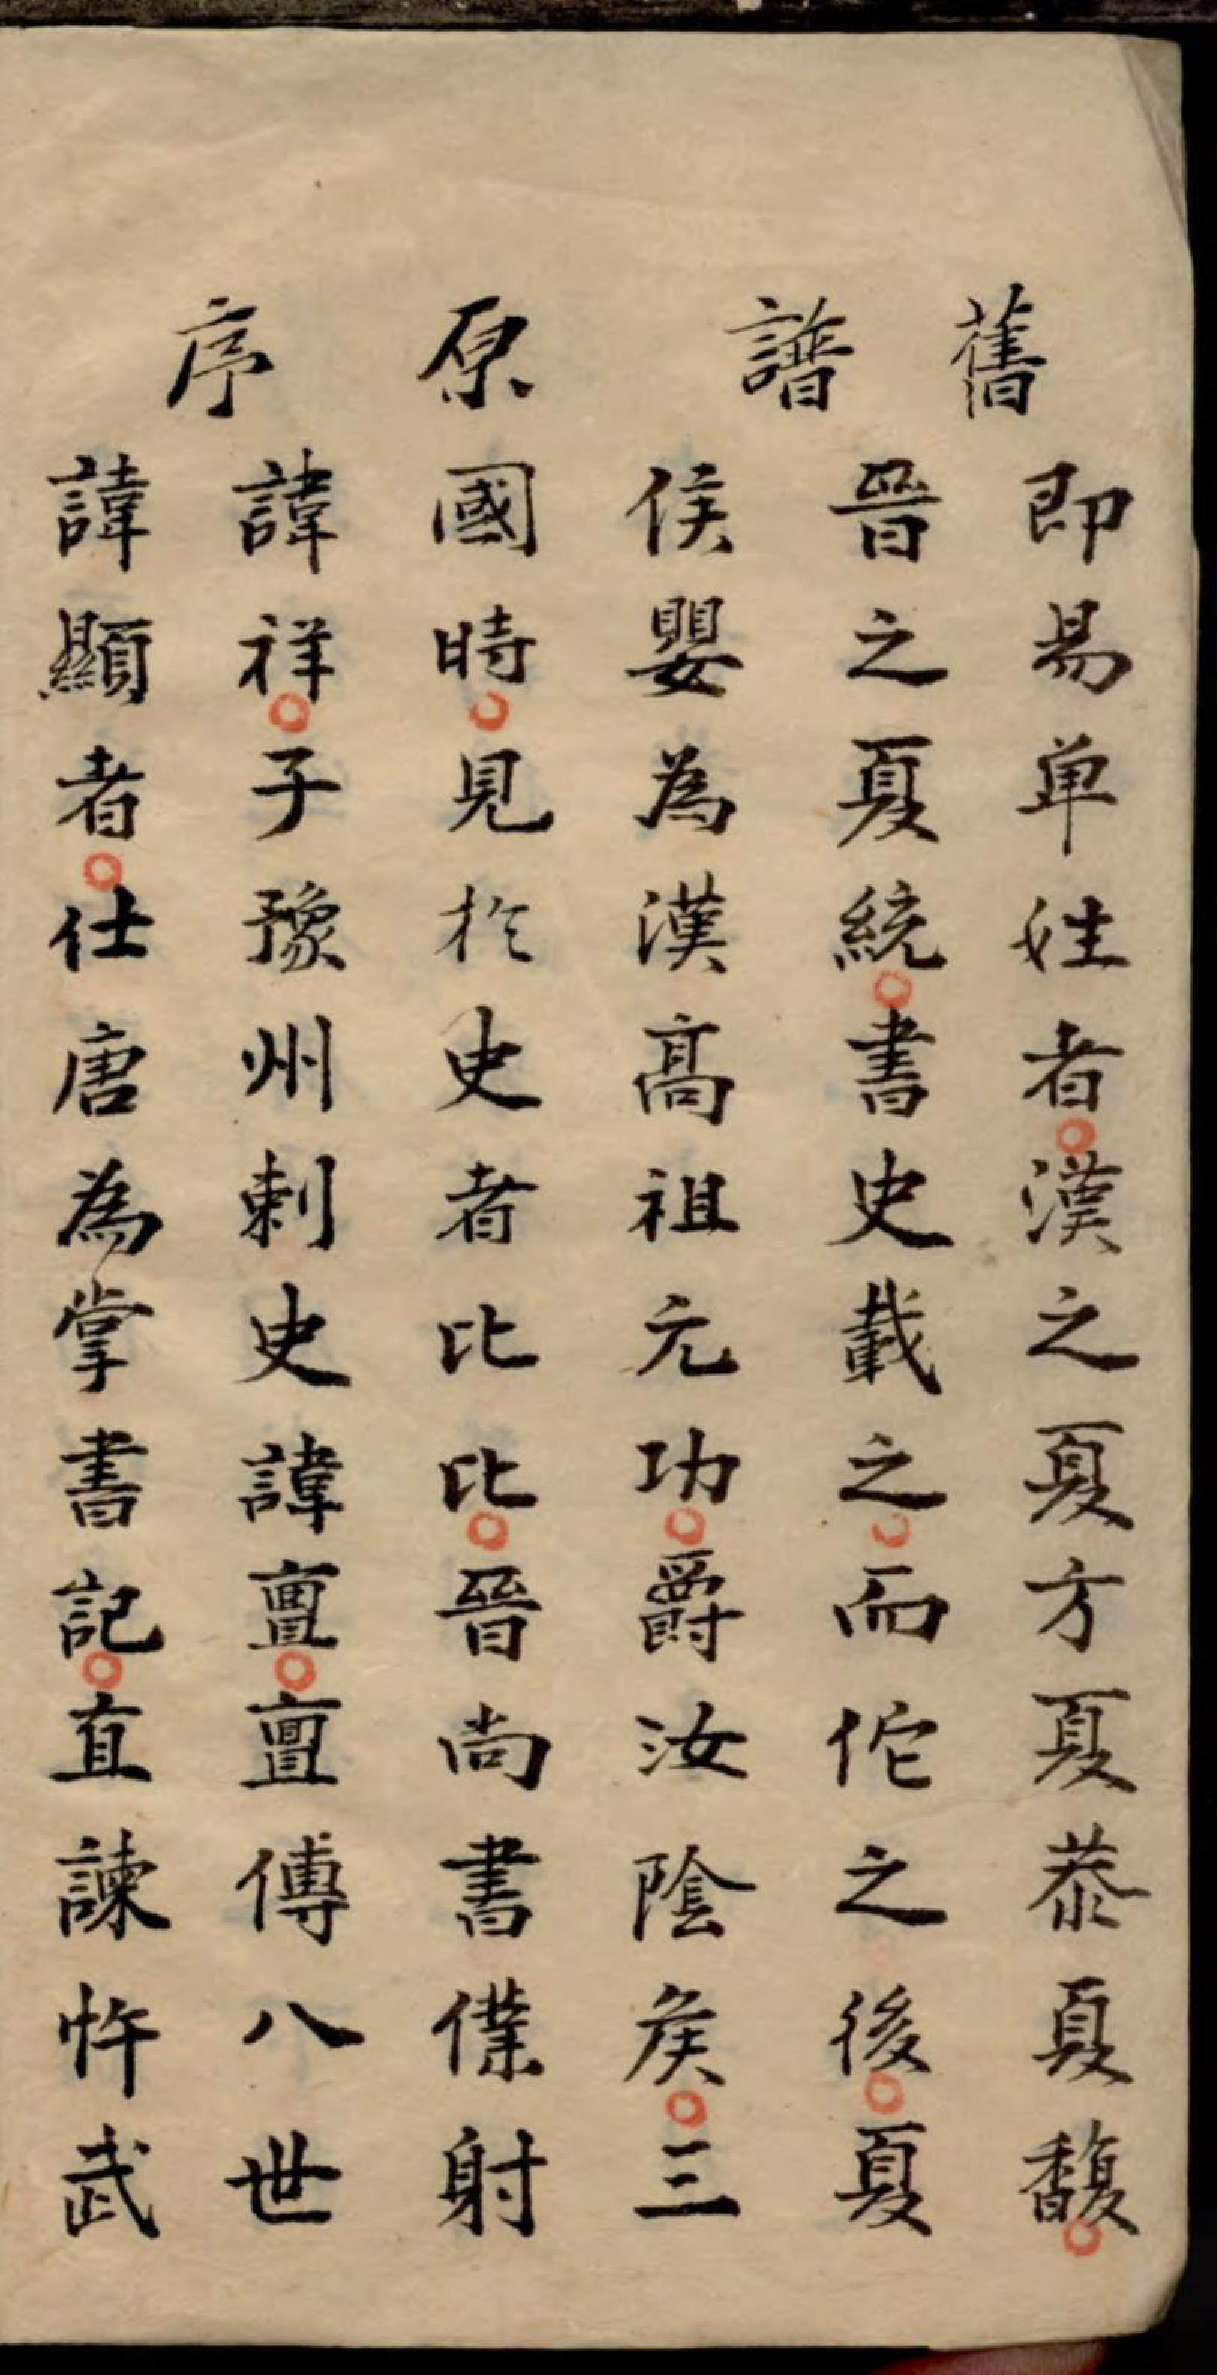 舊譜原序
即易単姓者漢之夏方夏恭夏馥
晉之夏統書史載之而佗之後夏
侯嬰為漢高祖元功爵汝陰侯三
國時見於史者比比晉尚書僕射
諱祥子豫州刺史諱亶亶傅八世
諱顯者仕唐為掌書記直諫忤武